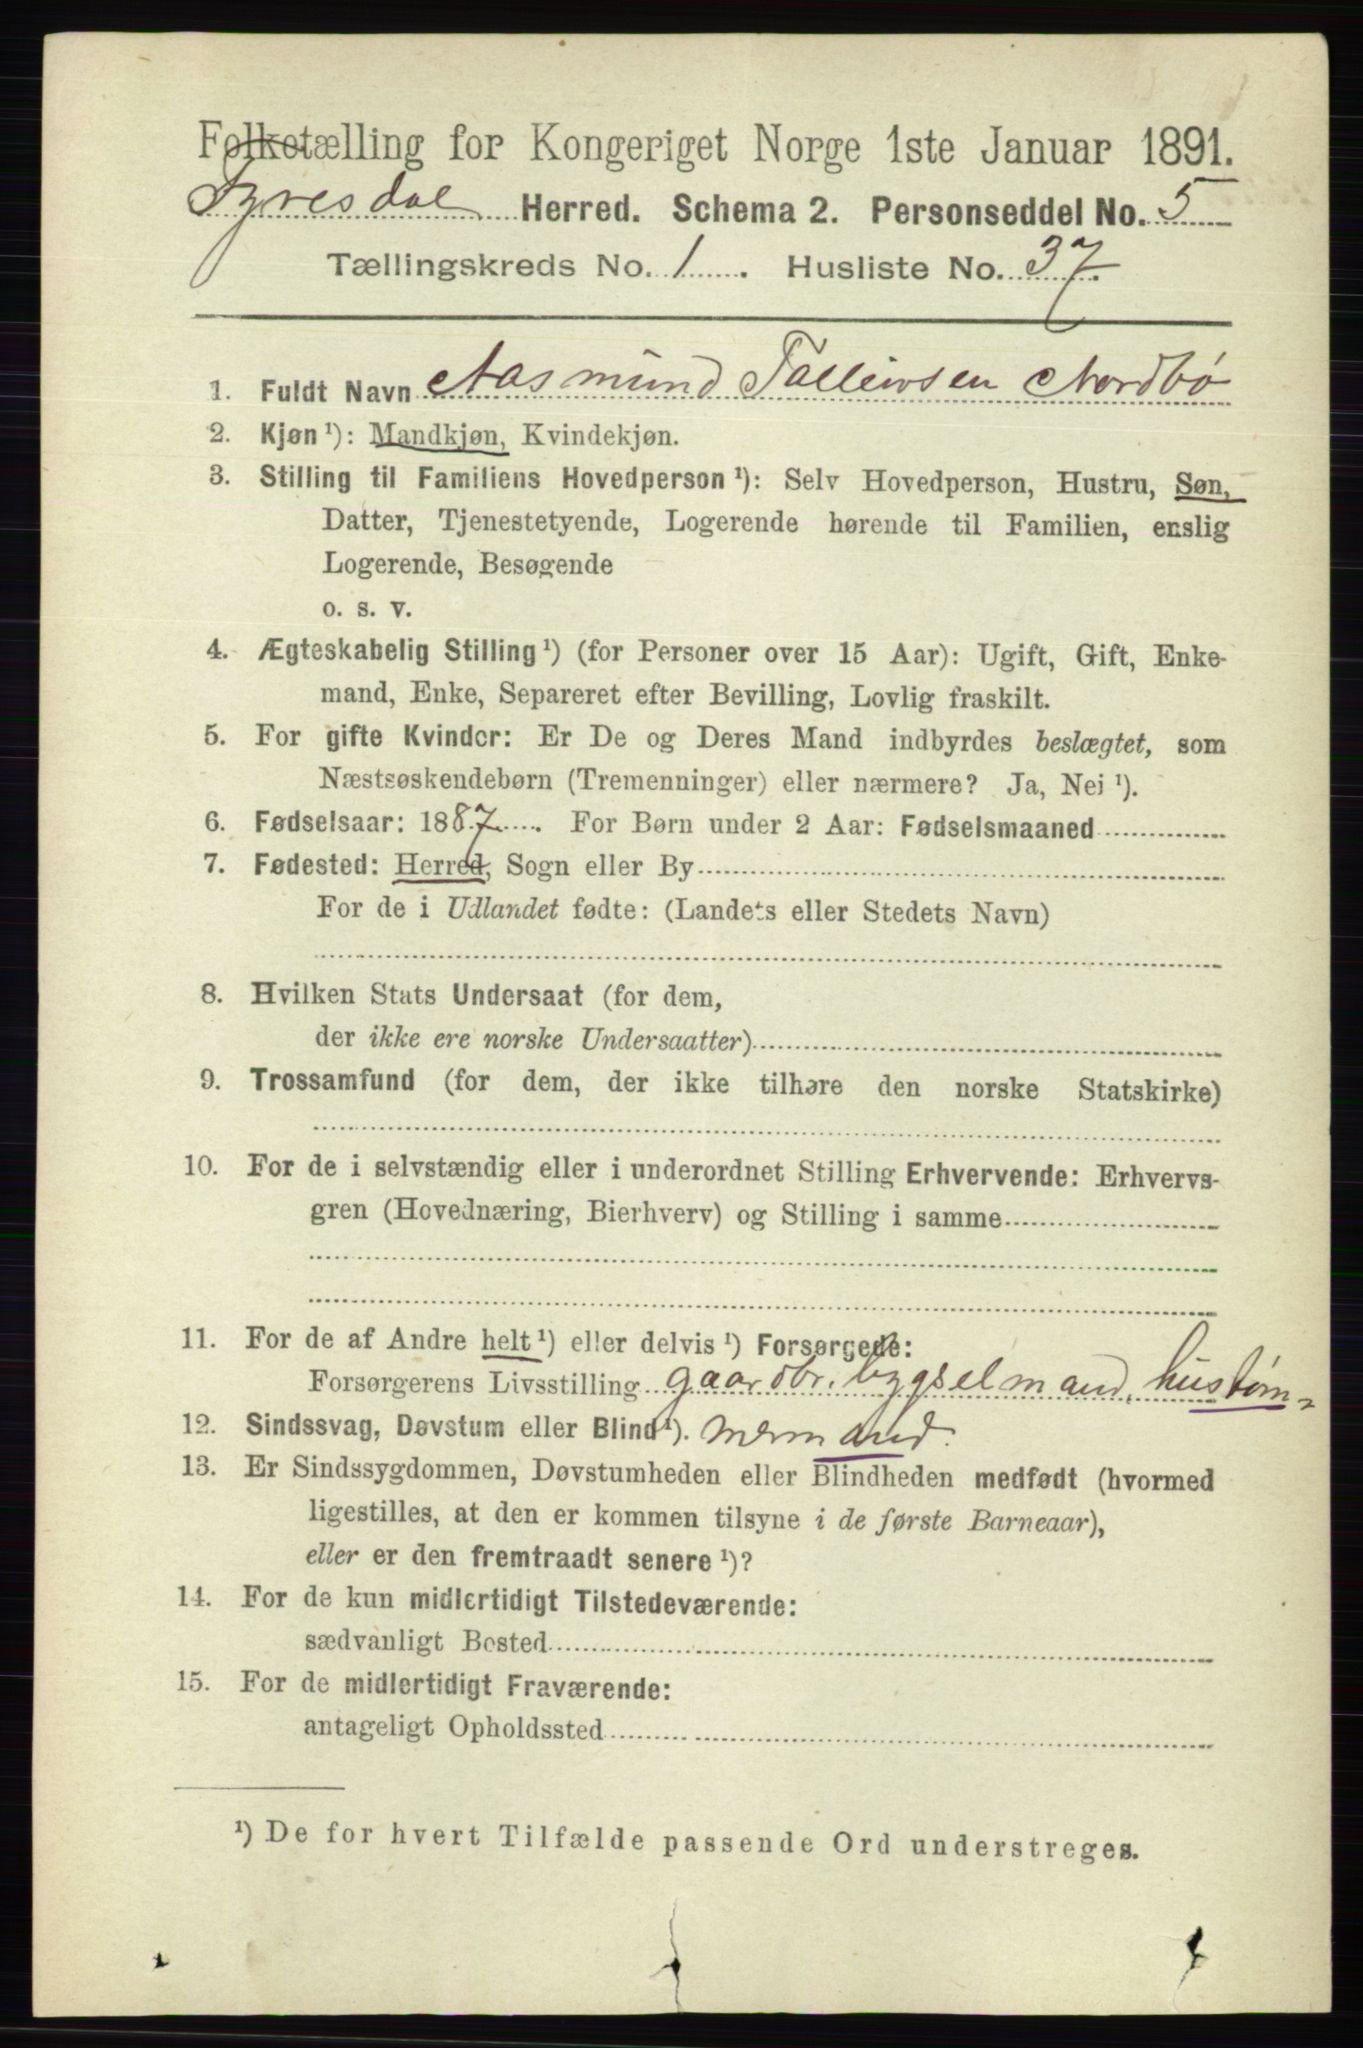 Folketælling for Kongeriget Norge 1ste Januar 1891.
Tyresdal Herred. Schema 2. Personseddel No. 5
Tællingskreds No. 1. Husliste No. 37.
1. Fuldt Navn Aasmund Talleivsen Nordbø
2. Kjøn ¹): Mandkjøn, Kvindekjøn.
3. Stilling til Familiens Hovedperson ¹): Selv Hovedperson, Hustru, Søn,
Datter, Tjenestetyende, Logerende hørende til Familien, enslig
Logerende, Besøgende
o. s. v.
4. Ægteskabelig Stilling ¹) (for Personer over 15 Aar): Ugift, Gift, Enke-
mand, Enke, Separeret efter Bevilling, Lovlig fraskilt.
5. For gifte Kvinder: Er De og Deres Mand indbyrdes beslægtet, som
Næstsøskendebørn (Tremenninger) eller nærmere? Ja, Nei ¹).
6. Fødselsaar: 1887. For Børn under 2 Aar: Fødselsmaaned
7. Fødested: Herred, Sogn eller By
For de i Udlandet fødte: (Landets eller Stedets Navn)
8. Hvilken Stats Undersaat (for dem,
der ikke ere norske Undersaatter)
9. Trossamfund (for dem, der ikke tilhøre den norske Statskirke)
10. For de i selvstændig eller i underordnet Stilling Erhvervende: Erhvervs-
gren (Hovednæring, Bierhverv) og Stilling i samme
11. For de af Andre helt ¹) eller delvis ¹) Forsørgede:
Forsørgerens Livsstilling gaardbr. bygselmand, hustøm-
12. Sindssvag, Døvstum eller Blind ¹). mermand.
13. Er Sindssygdommen, Døvstumheden eller Blindheden medfødt (hvormed
ligestilles, at den er kommen tilsyne i de første Barneaar),
eller er den fremtraadt senere ¹)?
14. For de kun midlertidigt Tilstedeværende:
sædvanligt Bosted
15. For de midlertidigt Fraværende:
antageligt Opholdssted
¹) De for hvert Tilfælde passende Ord understreges.